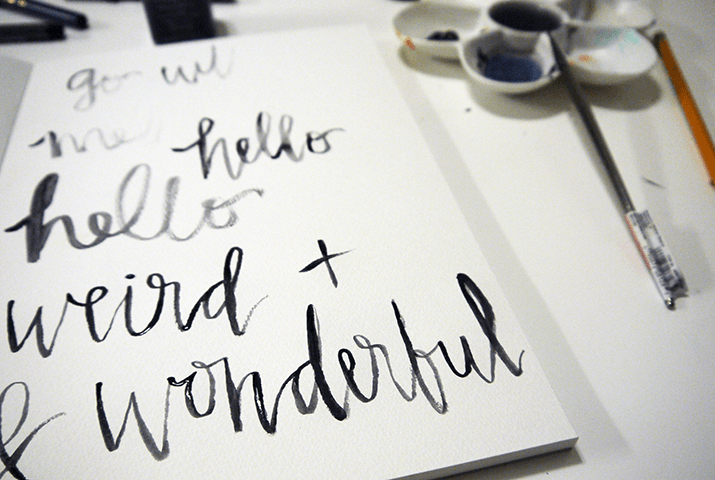 go wil
me hello
hello
weird +
& wonderful